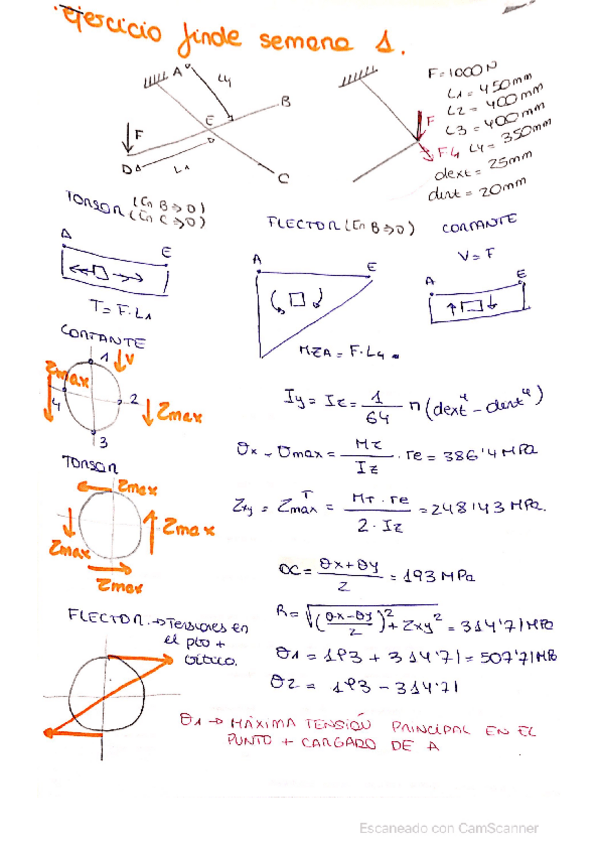 ejercicio finde semana 1.
A
L4
B
E
F
D
L1
C
F
F·L4
F=1000N
L1=450mm
L2=400mm
L3=400mm
L4=350mm
dext=25mm
dint=20mm
TORSOR (En B→0)
(En C→0)
FLECTOR (En B→0)
CORTANTE
V=F
A
E
T=F·L1
A
E
MZA = F·L4
A
E
CORTANTE
1
V
Zmax
4
2
Zmax
3
Iy = Iz = 1/64 π (dext⁴ - dint⁴)
σx - σmax = Mz/Iz · re = 386'4 MPa
TORSOR
Zmax
Zmax
Zmax
Zmax
Zxy = Zmax^T = MT·re/2·Iz = 248'43 MPa.
OC = σx+σy/2 = 193 MPa
R = √(σx-σy/2)² + Zxy² = 314'71 MPa
FLECTOR.→Tensiones en
el pto +
crítico.
σ1 = 193 + 314'71 = 507'71 MPa
σ2 = 193 - 314'71
σ1 → MÁXIMA TENSIÓN PRINCIPAL EN EL
PUNTO + CARGADO DE A
Escaneado con CamScanner